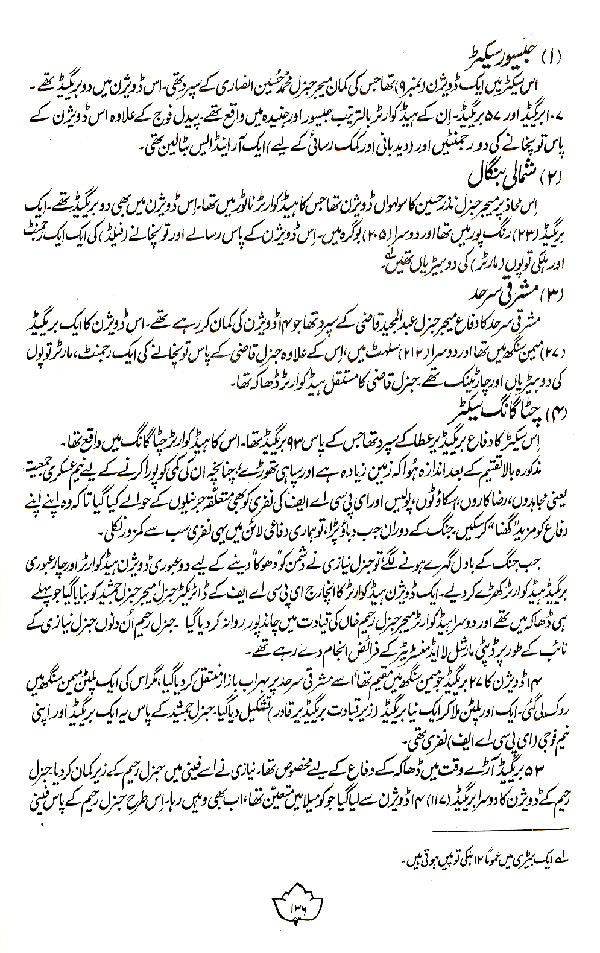 (۱) جیسور سیکٹر
اس سیکٹر میں ایک ڈویژن (نمبر ۹) تھا جس کی کمان میجر جنرل محمد حسین انصاری کے سپرد تھی۔ اس ڈویژن میں دو بریگیڈ تھے۔
۱۰۷ بریگیڈ اور ۵۷ بریگیڈ۔ اِن کے ہیڈ کوارٹر بالترتیب جیسور اور جنیدہ میں واقع تھے۔ پیدل فوج کے علاوہ اس ڈویژن کے
پاس توپخانے کی دو رجمنٹیں اور (دیدبانی اور کمک رسائی کے لیے) ایک آر اینڈ ایس بٹالین تھی۔
(۲) شمالی بنگال
اِس محاذ پر میجر جنرل نذر حسین کا سولہواں ڈویژن تھا جس کا ہیڈ کوارٹر ناٹور میں تھا۔ اس ڈویژن میں بھی دو بریگیڈ تھے۔ ایک
بریگیڈ (۲۳) رنگ پور میں تھا اور دوسرا (۲۰۵) بوگرہ میں۔ اس ڈویژن کے پاس رسالے اور توپخانے (فیلڈ) کی ایک ایک رجمنٹ
اور ہلکی توپوں (مارٹر) کی دو بیٹریاں تھیں۔ لہ
(۳) مشرقی سرحد
مشرقی سرحد کا دفاع میجر جنرل عبدالمجید قاضی کے سپرد تھا جو ۱۴ ڈویژن کی کمان کر رہے تھے۔ اس ڈویژن کا ایک بریگیڈ
(۲۷) میمن سنگھ میں تھا اور دوسرا (۲۱۲) سلہٹ میں، اِس کے علاوہ جنرل قاضی کے پاس توپخانے کی ایک رجمنٹ، مارٹر توپوں
کی دو بیٹریاں اور چار ٹینک تھے۔ جنرل قاضی کا مستقل ہیڈ کوارٹر ڈھاکہ تھا۔
(۴) چٹاگانگ سیکٹر
اِس سیکٹر کا دفاع بریگیڈیر عطا کے سپرد تھا جس کے پاس ۹۳ بریگیڈ تھا۔ اس کا ہیڈ کوارٹر چٹاگانگ میں واقع تھا۔
مذکورہ بالا تقسیم کے بعد اندازہ ہُوا کہ زمین زیادہ ہے اور سپاہی تھوڑے، چنانچہ ان کی کمی کو پورا کرنے کے لیے نیم عسکری جمعیت
یعنی مجاہدوں، رضاکاروں، اسکاؤٹوں، پولیس اور ای پی سی اے ایف کی نفری کو بھی متعلقہ جرنیلوں کے حوالے کیا گیا تاکہ وہ اپنے اپنے
دفاع کو مزید "گھنا" کر سکیں۔ جنگ کے دوران جب دباؤ پڑا، تو ہماری دفاعی لائن میں یہی نفری سب سے کمزور نکلی۔
جب جنگ کے بادل گہرے ہونے لگے تو جنرل نیازی نے دشمن کو "دھوکا" دینے کے لیے دو عبوری ڈویژن ہیڈ کوارٹر اور چار عبوری
بریگیڈ ہیڈ کوارٹر کھڑے کر دیے۔ ایک ڈویژن ہیڈ کوارٹر کا انچارج ای پی سی اے ایف کے ڈائریکٹر جنرل میجر جنرل جمشید کو بنایا گیا جو پہلے
ہی ڈھاکہ میں تھے اور دوسرا ہیڈ کوارٹر میجر جنرل رحیم خاں کی قیادت میں چاندپور روانہ کر دیا گیا۔ جنرل رحیم اُن دنوں جنرل نیازی کے
نائب کے طور پر ڈپٹی مارشل لا ایڈمنسٹریٹر کے فرائض انجام دے رہے تھے۔
۱۴ ڈویژن کا ۲۷ بریگیڈ جو میمن سنگھ میں مقیم تھا، اسے مشرقی سرحد پر بھیراب بازار منتقل کر دیا گیا، مگر اس کی ایک پلٹن میمن سنگھ میں
روک لی گئی۔ ایک اور پلٹن ملا کر ایک نیا بریگیڈ (زیر قیادت بریگیڈیر قادر) تشکیل دیا گیا۔ جنرل جمشید کے پاس یہ ایک بریگیڈ اور اپنی
نیم فوجی (ای پی سی اے ایف) نفری تھی۔
۵۳ بریگیڈ آڑے وقت میں ڈھاکہ کے دفاع کے لیے مخصوص تھا۔ نیازی نے اسے فینی میں جنرل رحیم کے زیر کمان کر دیا۔ جنرل
رحیم کے ڈویژن کا دوسرا بریگیڈ (۱۱۷) ۱۴ ڈویژن سے لیا گیا جو کومیلا میں متعین تھا، اب بھی وہیں رہا۔ اس طرح جنرل رحیم کے پاس فینی
لہ ایک بیٹری میں عموماً ۱۲ ہلکی توپیں ہوتی ہیں۔
۱۳۶